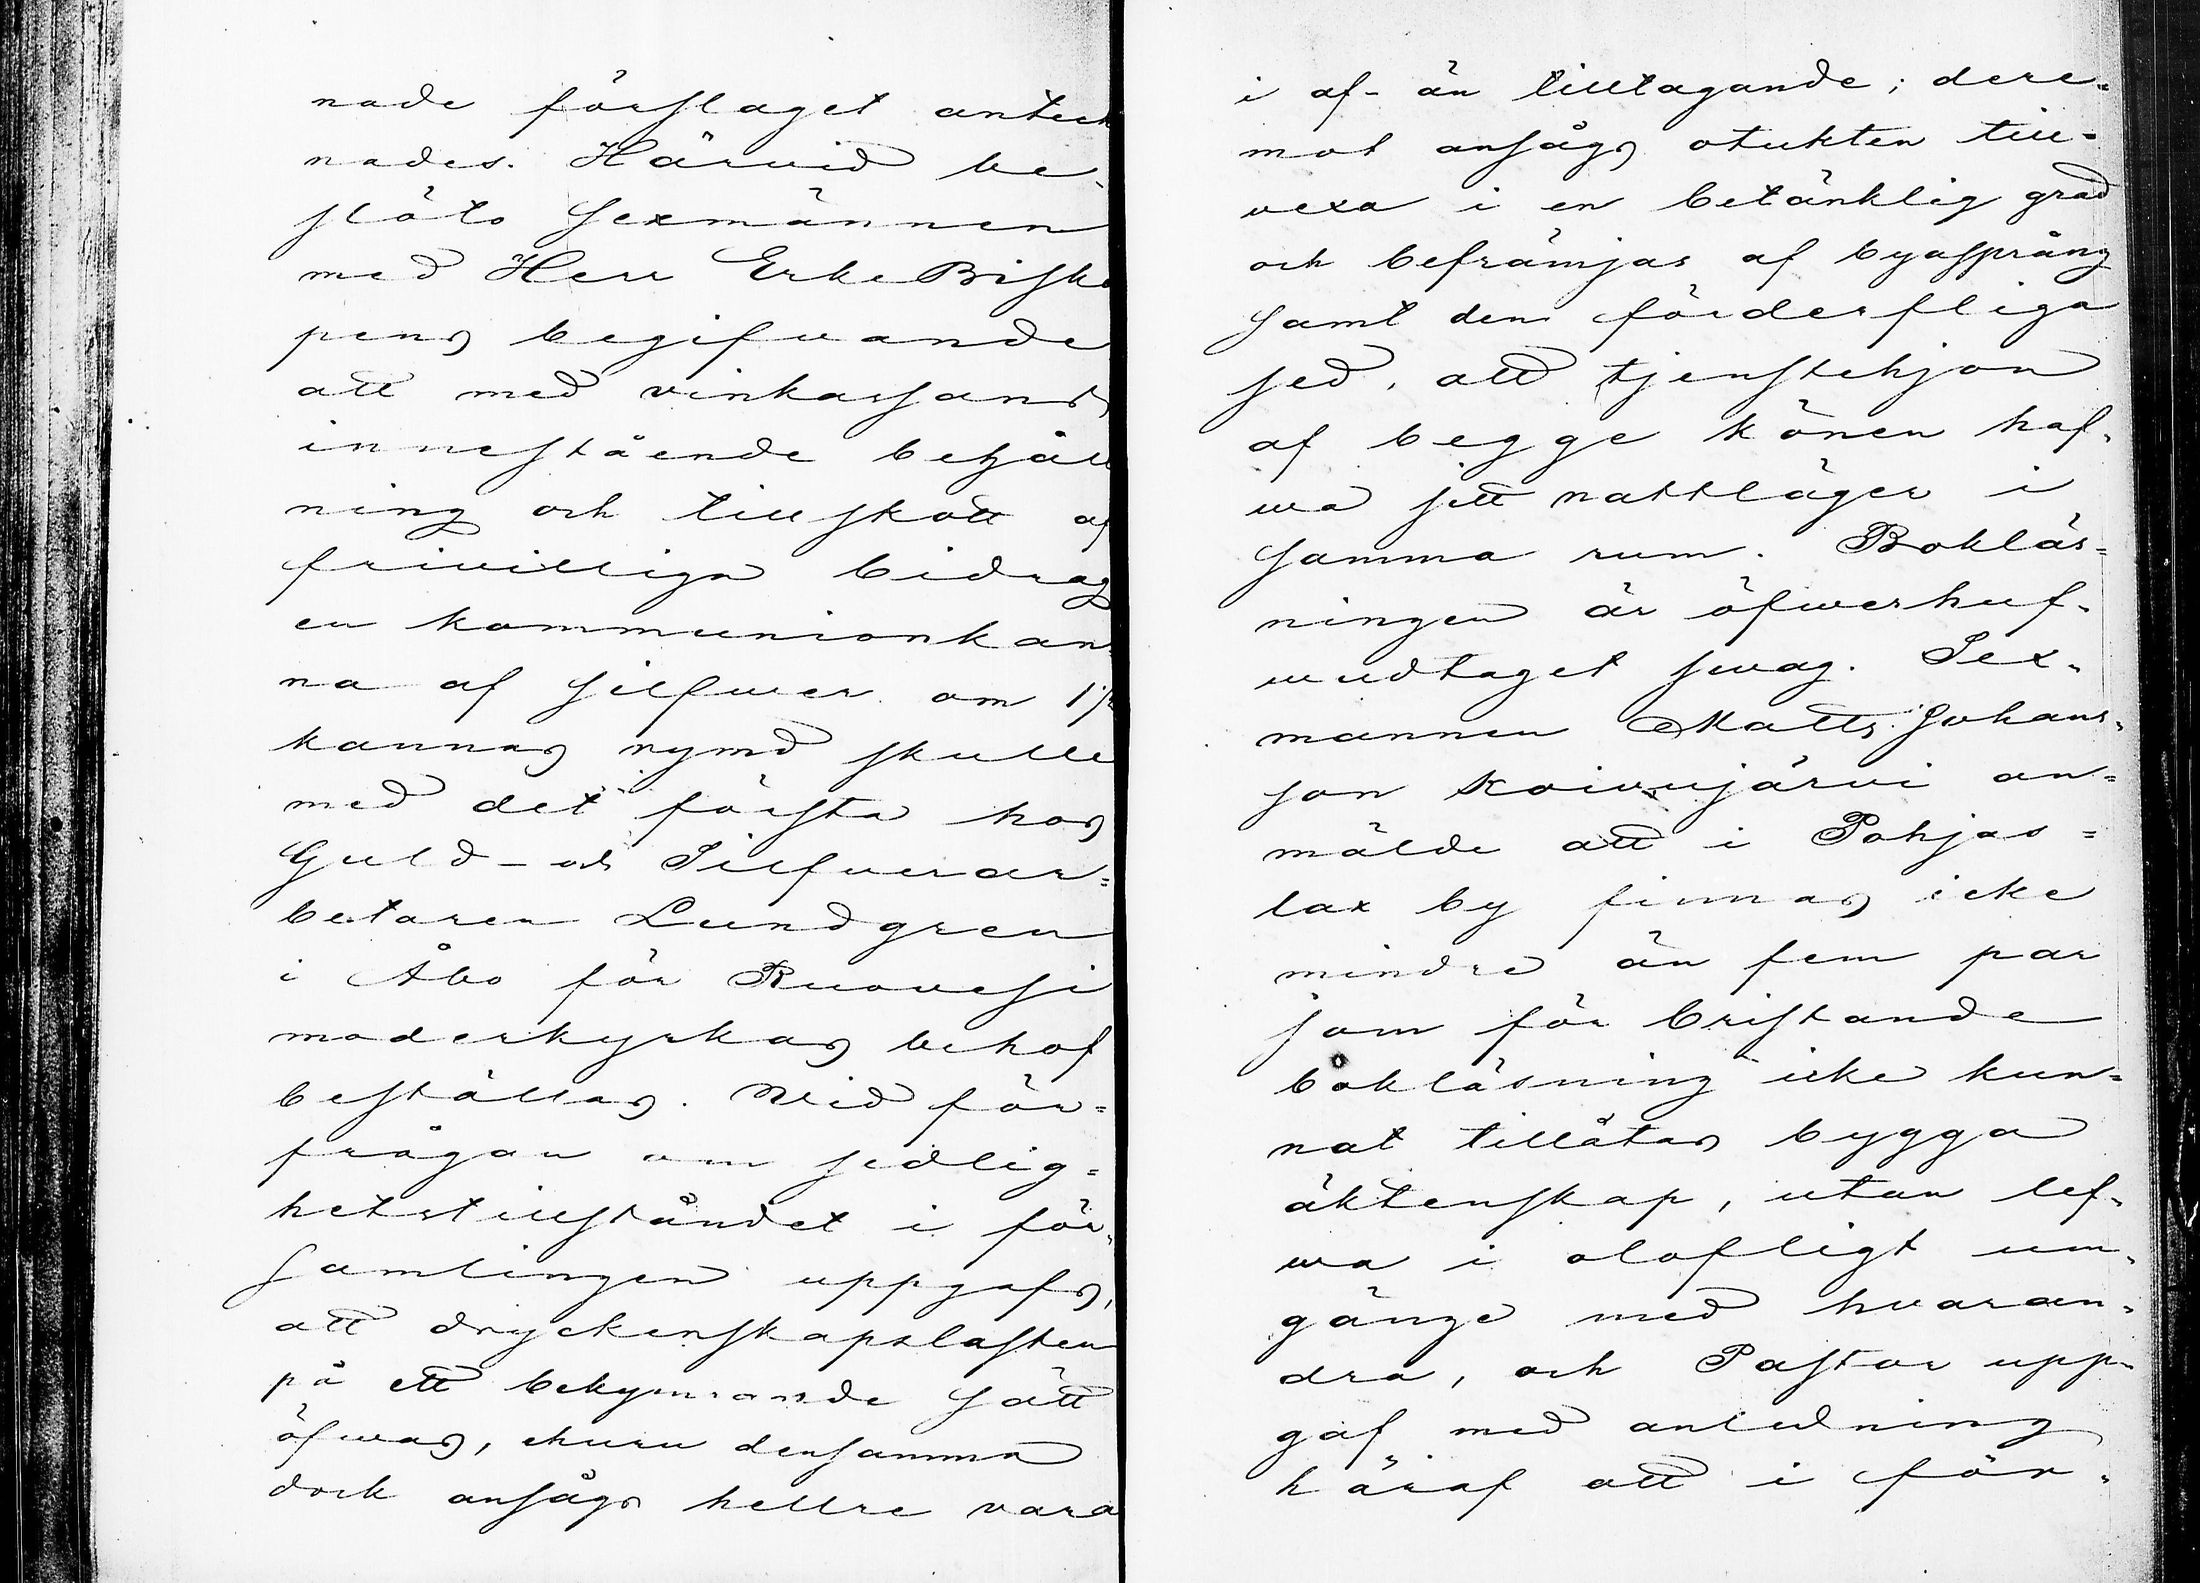 nade förslaget anteck
nades. Härvid be-
slöto Sexmännen
med Herr Erke Bisko
pens begifwande
att med vinkassans
innestående behåll
ning och tillskott af
frivilliga bidrag
en kommunionkan-
na af silfwer om 1/2
kannas rymd skulle
med det första hos
Guld- och Silfverar=
betaren Lundgren
i Åbo för Ruovesi
moderkyrkas behof
beställas. Wid för=
frågan om sedlig=
hetstillståndet i för-
samlingen uppgafs,
att dryckenskapslasten
på ett bekymrande sätt
öfwas, ehuru densamma
dock ansågs hellre vara
i af- än tilltagande; dere=
mot ansågs otukten till-
vexa i en betänklig grad
och befrämjas af byasprång
samt den förderfliga
sed, att tjenstehjon
af begge könen haf-
wa sitt nattläger i
samma rum. Bokläs=
ningen är öfwerhuf-
wudtaget swag. Sex-
mannen Matts Johans-
son Koivujärvi an=
mälde att i Pohjas=
lax by finnas icke
mindre än fem par
som för bristande
bokläsning icke kun=
nat tillåtas bygga
äktenskap, utan lef-
wa i olofligt um-
gänge med hvaran-
dra, och Pastor upp-
gaf med anledning
häraf att i för-